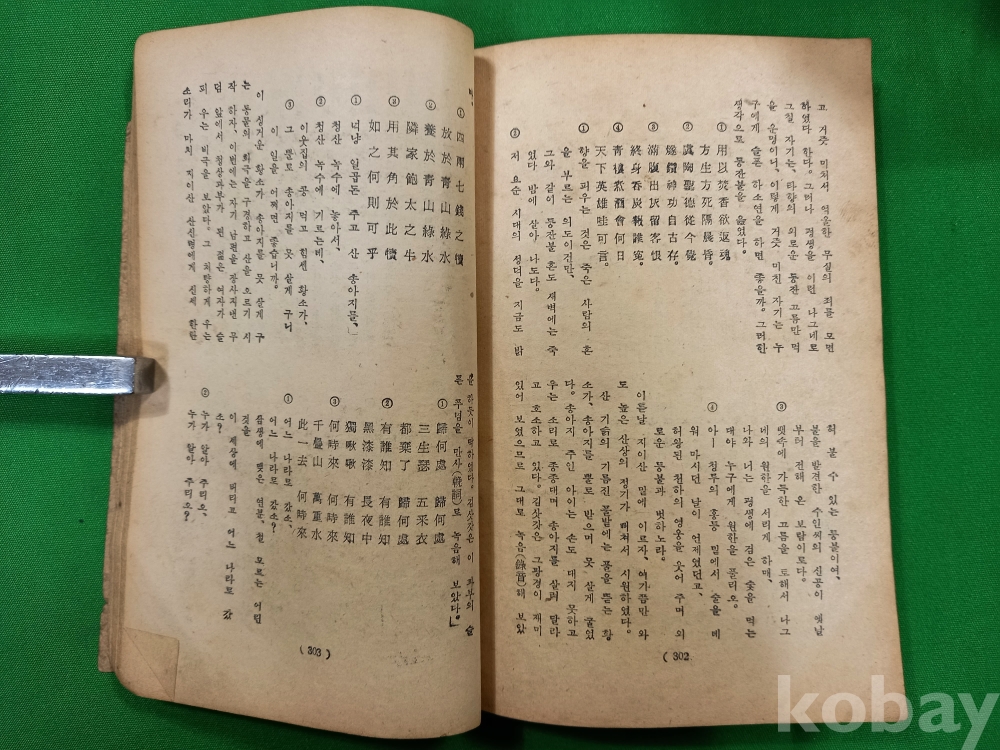 고 거즛 미쳐서 억울한 무실의 죄를 모면
하였다 한다。 그러나 평생을 이런 나그네로
그칠 자기는、타향의 외로운 등잔 고름만 먹
을 운명이니、이렇게 거즛 미친 자기는 누
구에게 슬픈 하소연을 하면 좋을까。그러한
생각으로 등잔불을 읊었다。
① 用以焚香欲返魂
方生方死隔晨昏。
② 虞陶聖德從今覺
燧鑽神功自古存。
③ 滿腹出灰留客恨
終身呑炭報誰寃。
④ 靑樓煮商會何日
天下英雄哇可言。
① 향을 피우는 것은 죽은 사람의 혼
을 부르는 의도이건만、
그와 같이 등잔분 혼도 새벽에는 죽
었다 밤에 살아 나도다。
② 저 요순 시대의 성덕을 지금도 밝
혀 볼 수 있는 등불이여、
불을 발견한 수인씨의 신공이 옛날
부터 전해 온 보람이로다。
③ 뱃속에 가득한 고름을 토해서 나그
네의 원한을 서리게 하매、
나와 너는 평생에 검은 숯을 먹는
대야 누구에게 원한을 풀리오。
④ 아― 침투의 홍등 밑에서 술을 메
워 마시던 날이 언제였던고、
허왕된 천하의 영웅을 웃어 주며 외
로운 등불과 벗하노라。
이튼날 지이산 밑에 이르자、여기쯤만 와
도 높은 산상의 정기가 떠쳐서 시원하였다。
산 기슭의 기름진 풀밭에는 풀을 뜯는 황
소가、송아지를 뿔로 받으며 못 살게 굴었
다。송아지 주인 아이는 손도 대지 못하고
우는 소리로 종종대며 송아지를 살려 달라
고 호소하고 있다。김삿갓은 그광경이 재미
있어 보였으므로 그대로 녹음(錄音)해 보았
( 302 )
다。
① 四兩七錢之犢
放於靑山綠水
② 養於靑山綠水
隣家飽太之牛
③ 用其角於此犢
如之何則可乎
① 넉냥 일곱돈 주고 산 송아지를、」
청산 녹수에 놓아서、
② 청산 녹수에 기르는데、
이웃집의 콩 먹고 힘센 황소가、
③ 그 뿔로 송아지를 못 살게 구니
이 일을 어쩌면 좋습니까。
이 싱거운 황소가 송아지를 못 살게 구
는 동물의 희극을 구경하고 산을 오르기 시
작 하자、이번에는 자기 남편을 장사지낸 무
덤 앞에서 청상과부가 된 젊은 여자가 슬
피 우는 비극을 보았다。그 처량하게 우는
소리가 마치 지이산 산신령에게 신세 한탄
을 하듯이 딱하였다。김삿갓은 이 과부의 슬
픈 푸념을 만사(輓詞)로 녹음해 보았다。」
① 歸何處 歸何處
三生瑟 五采衣
都棄了 歸何處
② 有誰知 有誰知
黑漆漆 長夜中
獨啾啾 有誰知
③ 何時來 何時來
千疊山 萬重水
此一去 何時來
① 어느 나라로 갔소、
어느 나라로 갔소?
삼생에 맺은 연분、철 모르는 어린
것을
이 세상에 버티고 어느 나라로 갔
소?
② 누가 알아 주리오、
누가 알아 주리오?
( 303 )
kobay